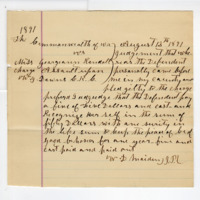 1891
The Commonwealth of Va August 15th 1891
vs Judgement that whe
Misd Georgeanna Randall near the Defendent
Charge Assault upon Personally came before
me in my county and
plead guilty to the charge
prefered Judgment that the Defendent pay
a fine of five Dollars and cost and
Recognize her self in the sum of
fifty Dollars with one surity in
the like sum to keep the peace of lord
good behavior for one year fine and
cost paid and paid out
W D Maiden J.P.